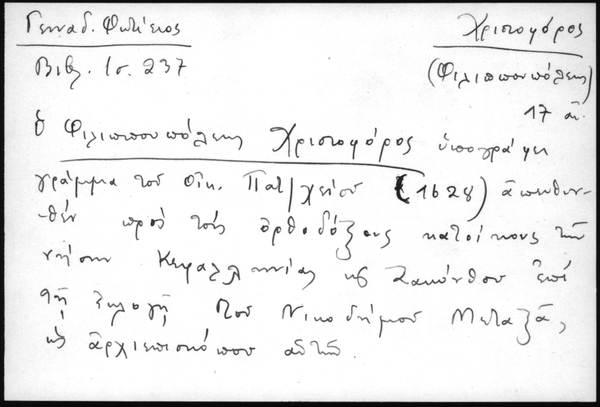 Γενναδ. Φωτίειος Χριστοφόρος
Βιβλ. Ισ. 237 (Φιλιππουπόλεως)
17 αι.
ὁ Φιλιππουπόλεως Χριστοφόρος ὑπογράφει
γράμμα τοῦ Οἰκ. Πατ/χείου (1628) ἀπευθυν-
θέν πρός τούς ὀρθοδόξους κατοίκους τῶν
νήσων Κεφαλληνίας κ Ζακύνθου ἐπί
τῇ ἐκλογῇ τοῦ Νικοδήμου Μεταξᾶ,
ὡς ἀρχιεπισκόπου αὐτῶν.